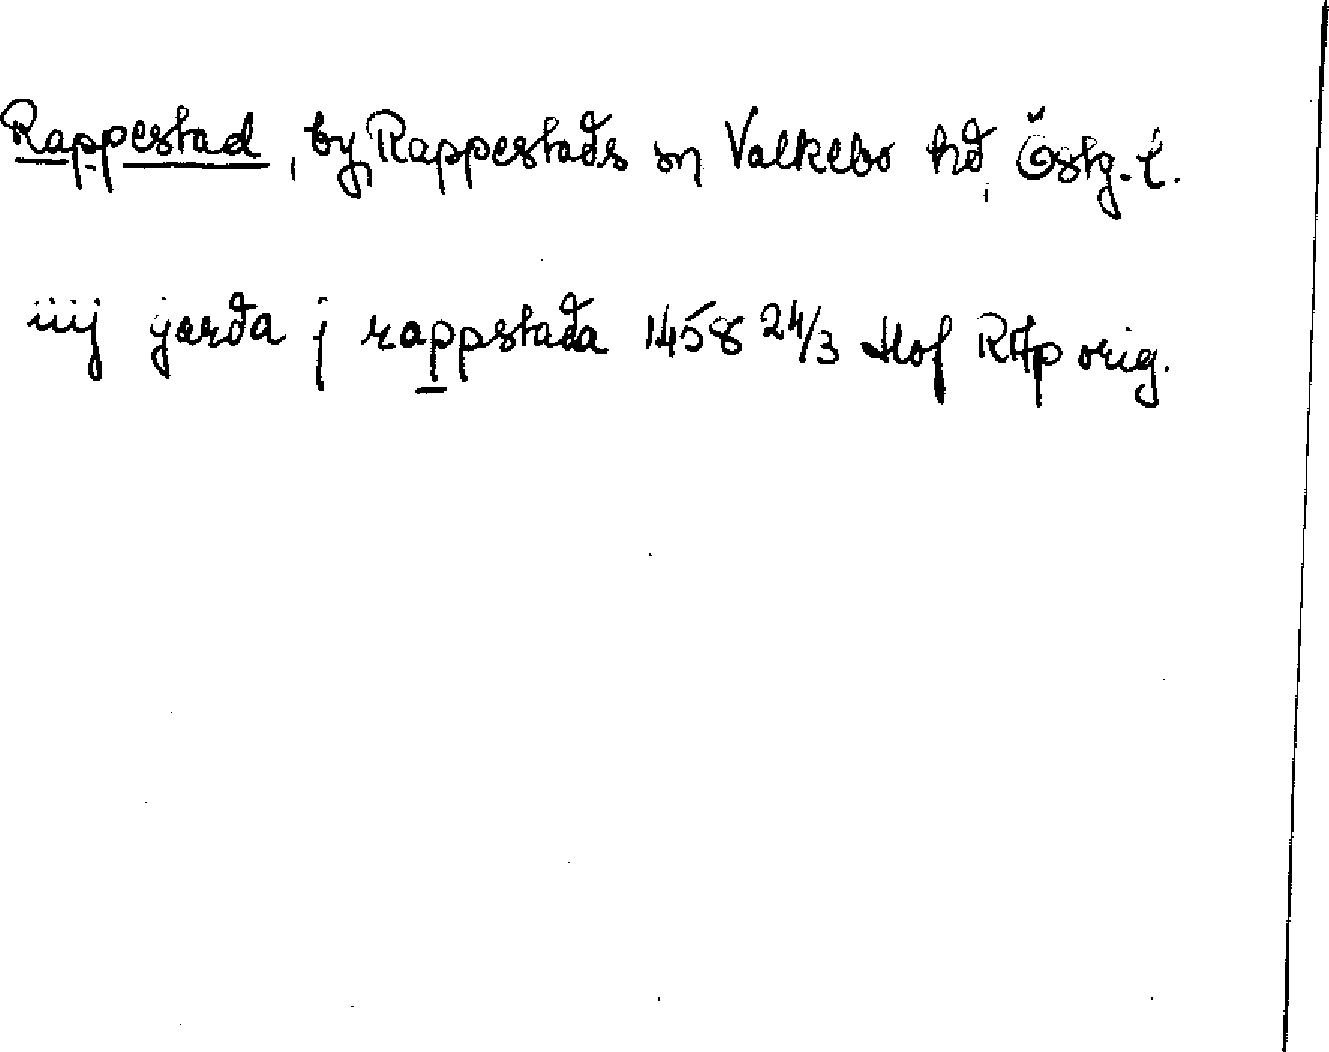 Rappestad, by, Rappestads sn Valkebo hd, Östg. l.
iiij garda j rappstada 1458 24/3 Hof RAp orig.